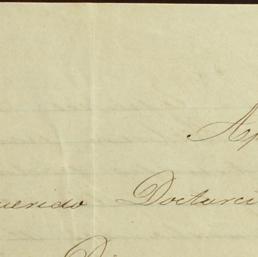 Ap
uerido Doctorci